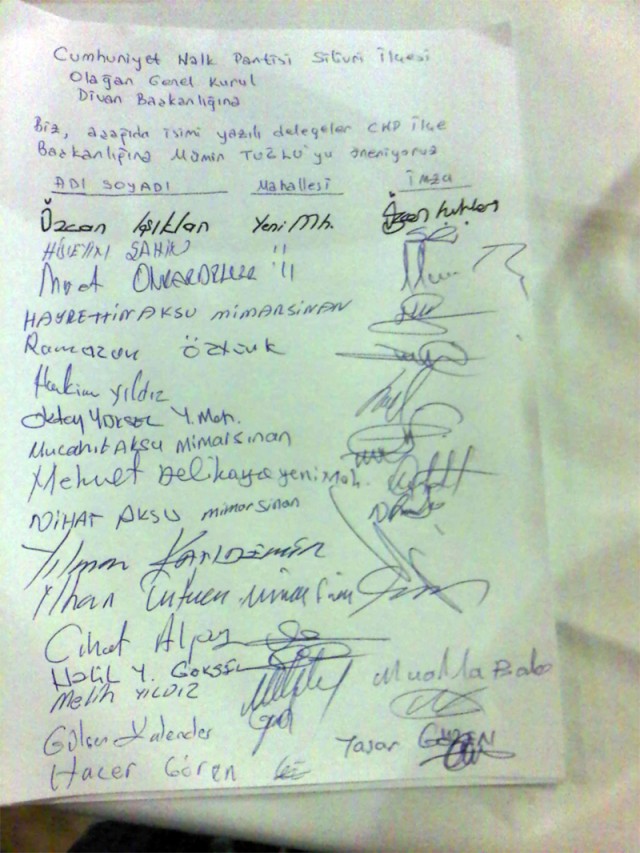 Cumhuriyet Halk Partisi Silivri İlçesi
Olağan Genel Kurul
Divan Başkanlığına
Biz, aşağıda isimi yazılı delegeler CHP İlçe
Başkanlığına Mümin TUĞLU'yu öneriyoruz
ADI SOYADI Mahallesi İmza
Özcan Işıklar Yeni Mh. Özcan Işıklar
HÜSEYİN ŞAHİN "
Murat "
HAYRETTİN AKSU MİMARSİNAN
Ramazan ÖZTÜRK
Hakim Yıldız
Oktay YÜKSEL Y.Mah.
Mücahit AKSU Mimarsinan
Mehmet Delikaya yeni Mah.
NİHAT AKSU mimarsinan
Yılman KARADEMİR
İlhan mimar Sinan
Cihat Alpay
Halil Y. GÖKSEL
Melih YILDIZ Mualla
Gülsen Kalender
Yaşar
Hacer Gören